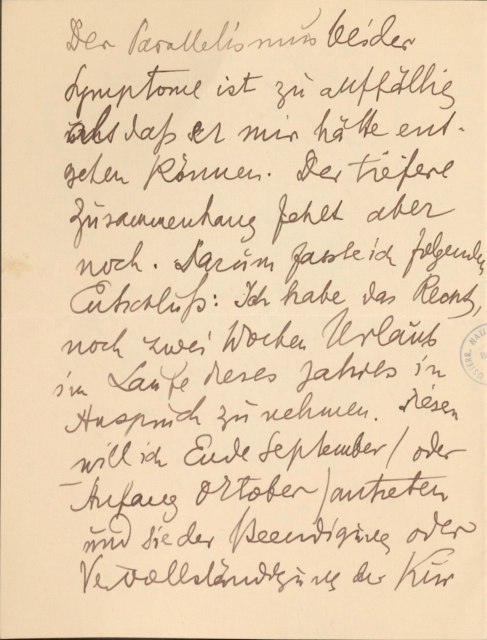 Der Parallelismus beider
Symptome ist zu auffällig
als daß er mir hätte ent-
gehen können. Der tiefere
Zusammenhang fehlt aber
noch. Darum fasste ich folgenden
Entschluß: Ich habe das Recht,
noch zwei Wochen Urlaub
im Laufe dieses Jahres in
Anspruch zu nehmen. Diesen
will ich Ende September / oder
Anfang Oktober / antreten
und sie der Beendigung oder
Vervollständigung der Kur
ÖSTERR. NAT